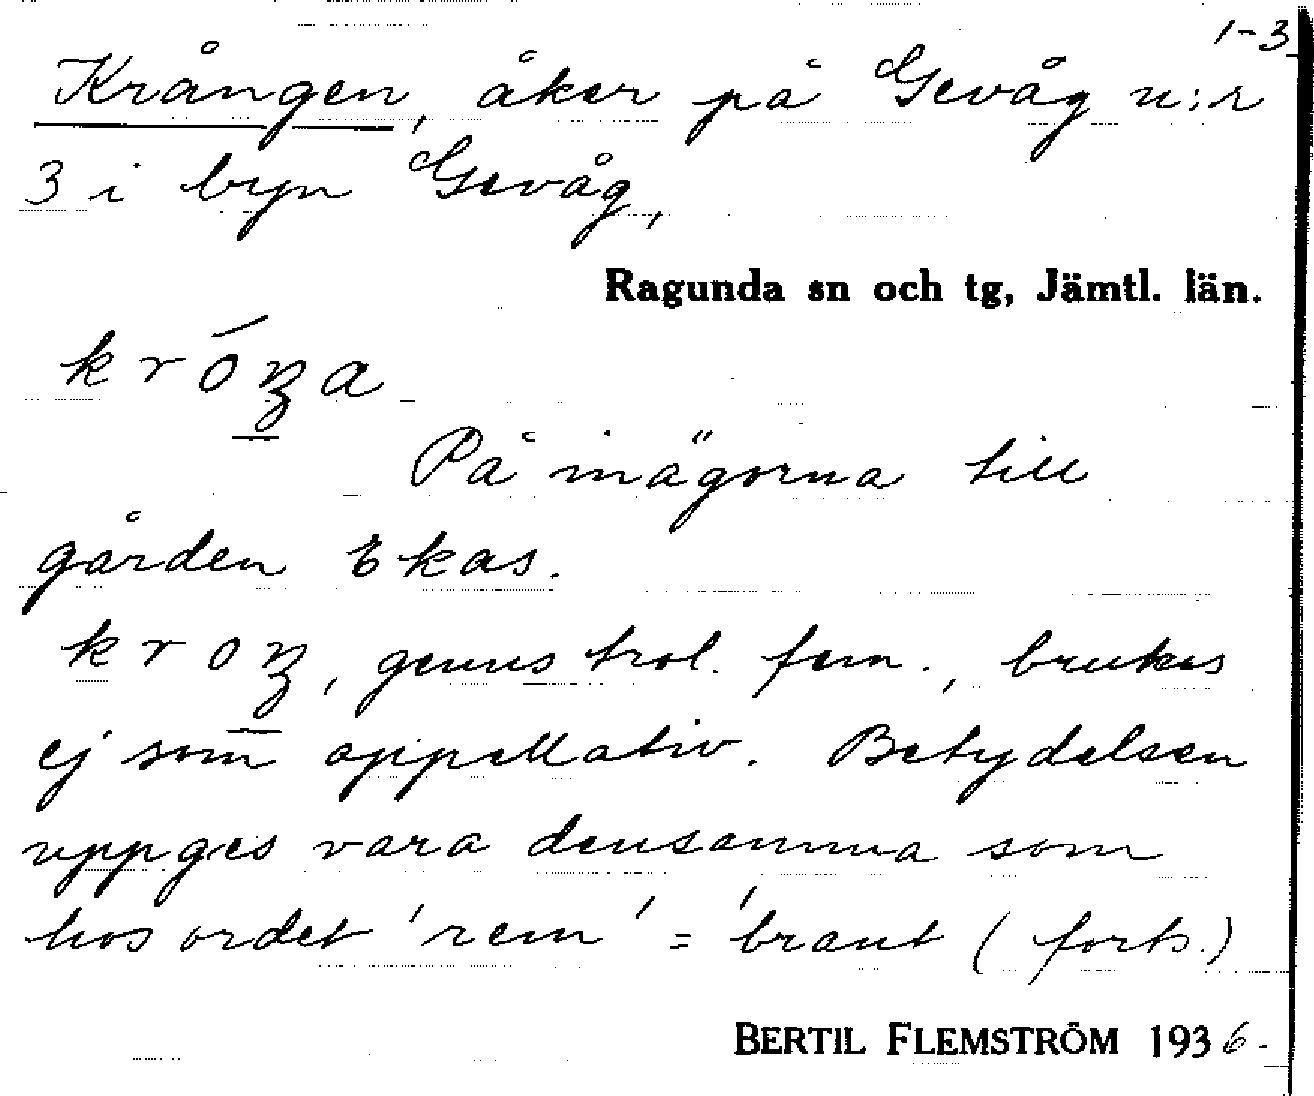 1-3
Krången, åker på Gevåg n:r
3 i byn Gevåg,
Ragunda sn och tg, Jämtl. län.
króŋa
På inägorna till
gården Ekas.
kroŋ, genus trol. fem., brukas
ej som appellativ. Betydelsen
uppges vara densamma som
hos ordet 'rem' = 'brant (forts.)
BERTIL FLEMSTRÖM 1936-